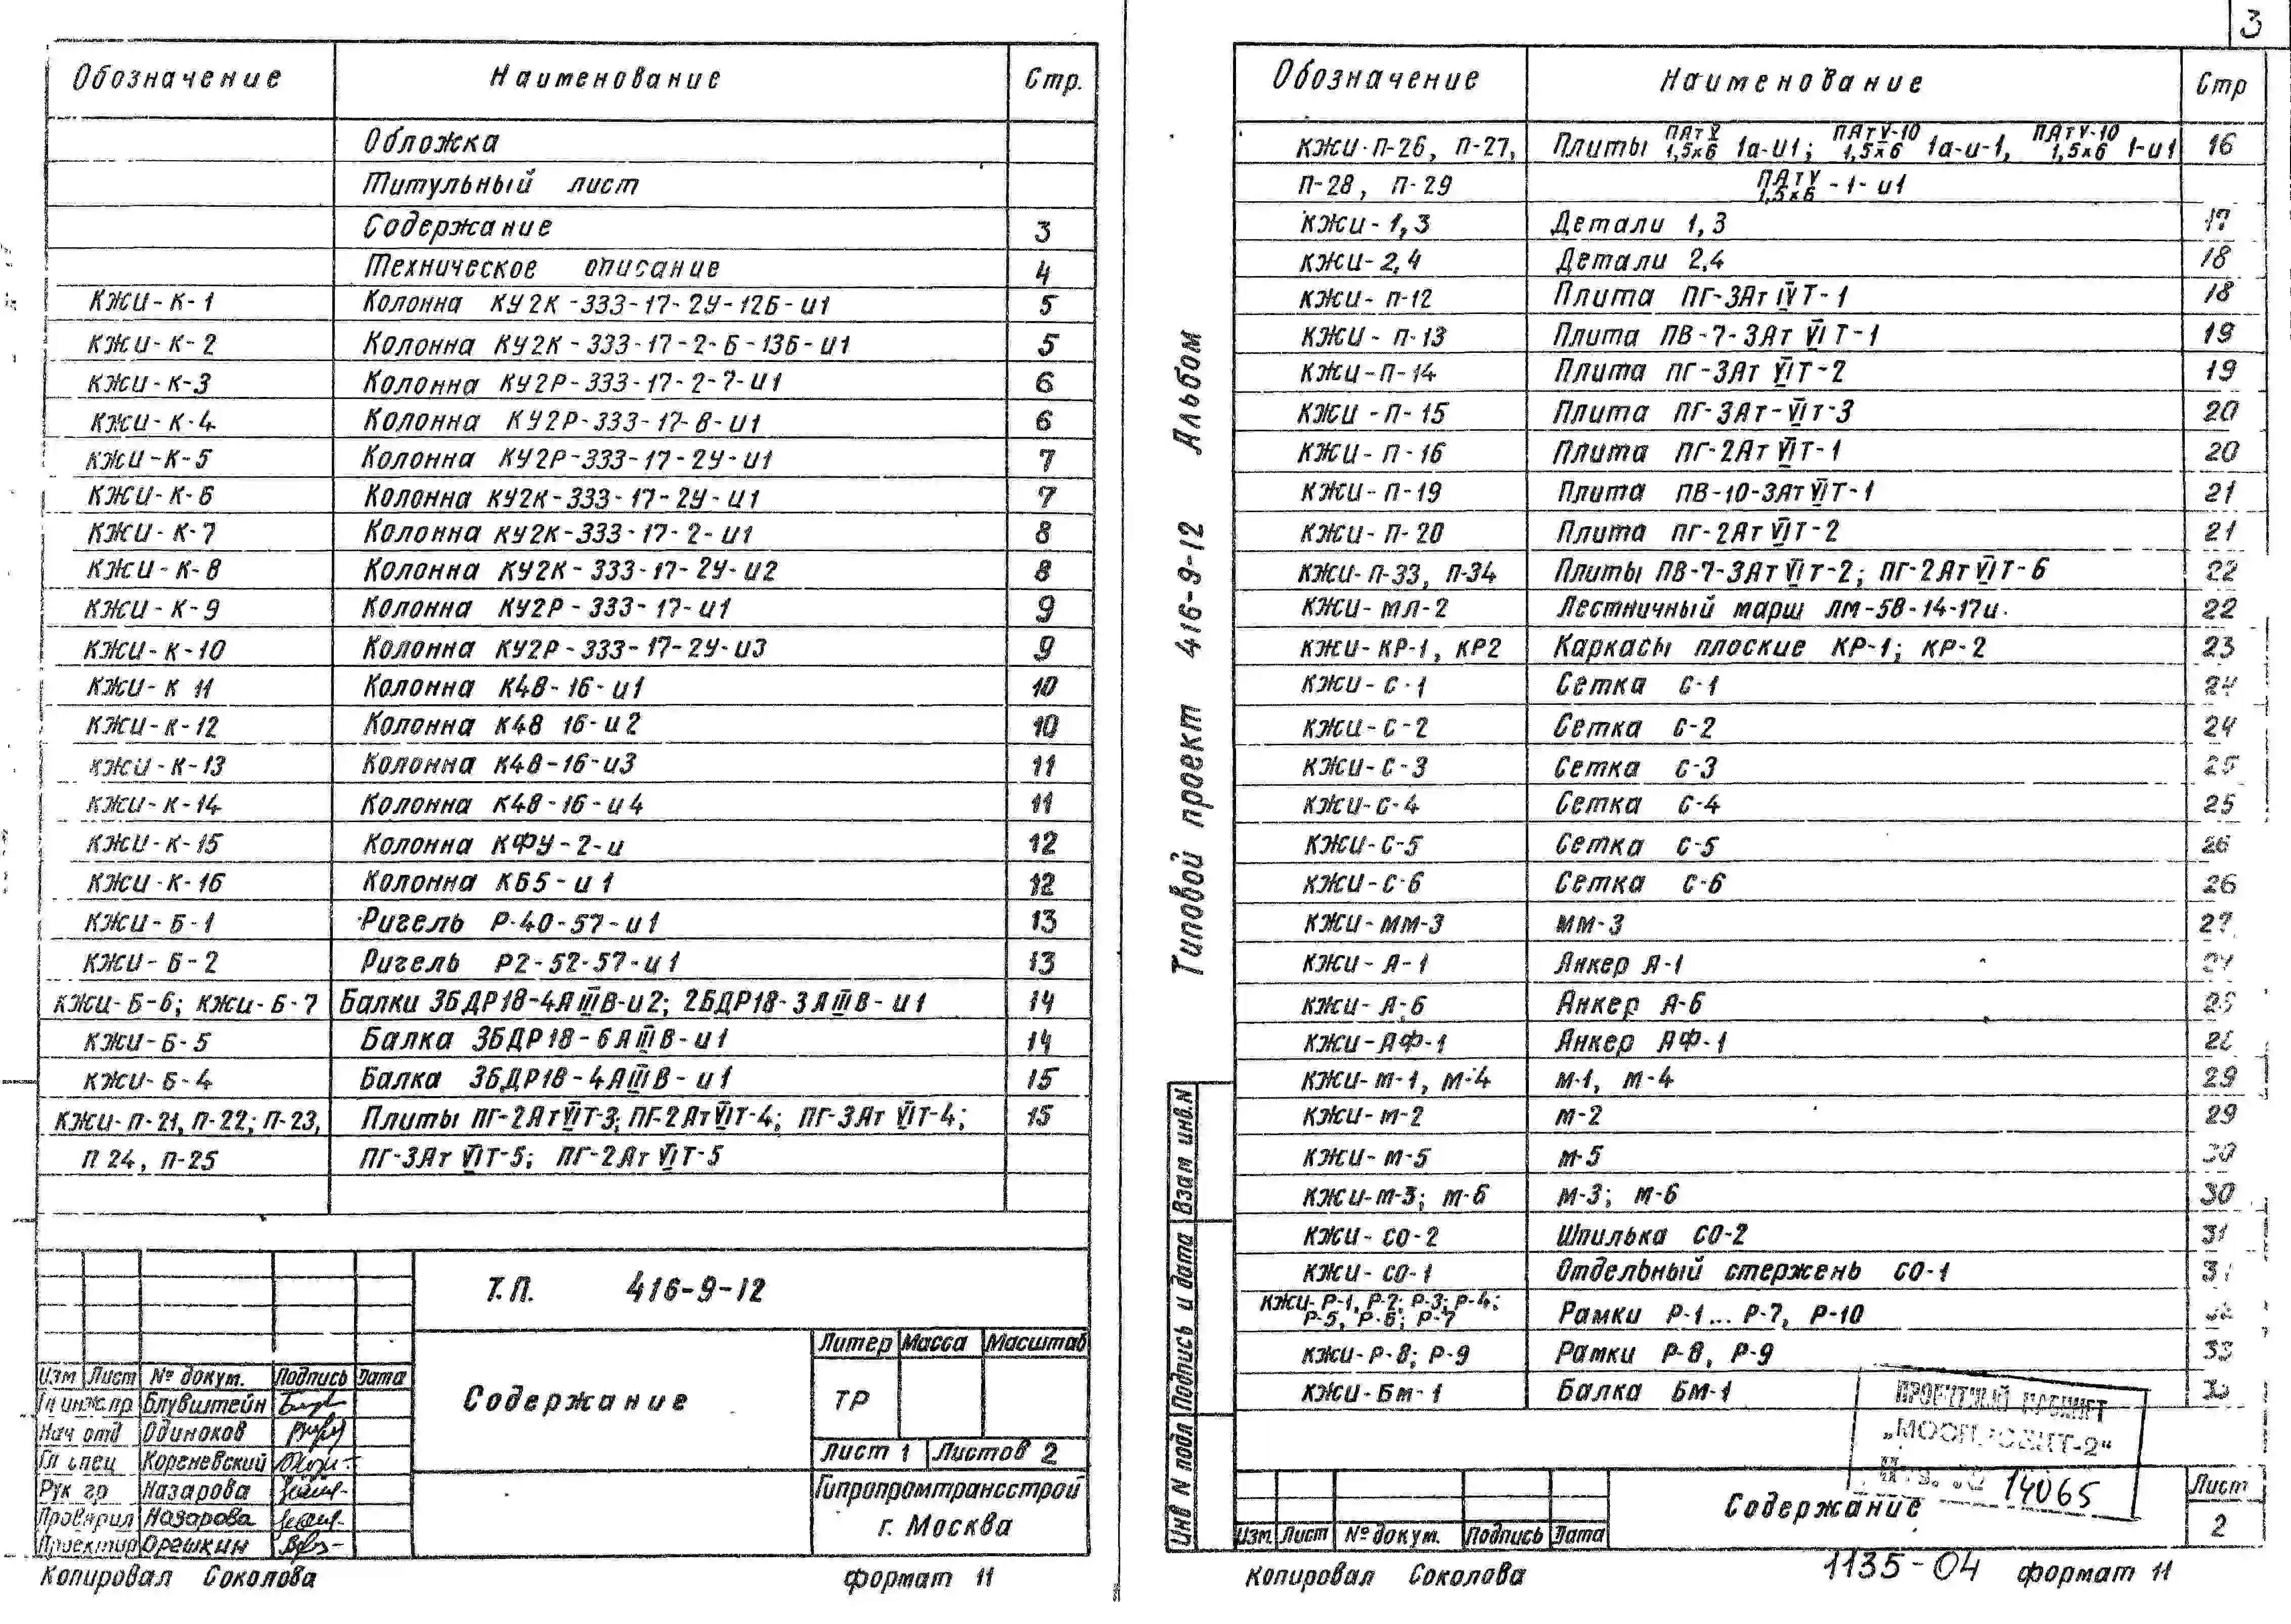 3
Обозначение Наименование Стр.
Обложка
Титульный лист
Содержание 3
Техническое описание 4
КЖИ-К-1 Колонна КУ2К-333-17-2У-12Б-и1 5
КЖИ-К-2 Колонна КУ2К-333-17-2-Б-13Б-и1 5
КЖИ-К-3 Колонна КУ2Р-333-17-2-7-И1 6
КЖИ-К-4 Колонна КУ2Р-333-17-8-И1 6
КЖИ-К-5 Колонна КУ2Р-333-17-2У-И1 7
КЖИ-К-6 Колонна КУ2К-333-17-2У-И1 7
КЖИ-К-7 Колонна КУ2К-333-17-2-И1 8
КЖИ-К-8 Колонна КУ2К-333-17-2У-И2 8
КЖИ-К-9 Колонна КУ2Р-333-17-и1 9
КЖИ-К-10 Колонна КУ2Р-333-17-2У-И3 9
КЖИ-К 11 Колонна К48-16-и1 10
КЖИ-К-12 Колонна К48 16-и2 10
КЖИ-К-13 Колонна К48-16-и3 11
КЖИ-К-14 Колонна К48-16-и4 11
КЖИ-К-15 Колонна КФУ-2-и 12
КЖИ-К-16 Колонна К65-и1 12
КЖИ-Б-1 Ригель Р-40-57-и1 13
КЖИ-Б-2 Ригель Р2-52-57-и1 13
КЖИ-Б-6; КЖИ-Б-7 Балки 3БДР18-4АIIIВ-и2; 2БДР18-3АIIIВ-и1 14
КЖИ-Б-5 Балка 3БДР18-6АIIIВ-и1 14
КЖИ-Б-4 Балка 3БДР18-4АIIIВ-и1 15
КЖИ-П-21, П-22; П-23, Плиты ПГ-2АтVIТ-3; ПГ-2АтVIТ-4; ПГ-3Ат VIТ-4; 15
П 24, П-25 ПГ-3Ат VIТ-5; ПГ-2Ат VIТ-5
Т.П. 416-9-12
Литер Масса Масштаб
Изм Лист № докум. Подпись Дата
Гл инж.пр Блувштейн
Содержание ТР
Нач отд Одиноков
Гл спец Кореневский Лист 1 Листов 2
Рук гр Назарова Гипропромтрансстрой
Проверил Назарова г. Москва
Проектир Орешкин
Копировал Соколова формат 11
Типовой проект 416-9-12 Альбом
Инв N подл Подпись и дата Взам инв.N
Обозначение Наименование Стр
КЖИ-П-26, П-27, Плиты ПАтV 1,5х6 1а-И1; ПАтV-10 1,5х6 1а-и-1, ПАтV-10 1,5х6 1-и1 16
П-28, П-29 ПАтV 1,5х6 -1-и1
КЖИ-1,3 Детали 1,3 17
КЖИ-2,4 Детали 2,4 18
КЖИ-П-12 Плита ПГ-3Ат IVТ-1 18
КЖИ-П-13 Плита ПВ-7-3Ат VIТ-1 19
КЖИ-П-14 Плита ПГ-3Ат VIТ-2 19
КЖИ-П-15 Плита ПГ-3Ат-VIТ-3 20
КЖИ-П-16 Плита ПГ-2Ат VIТ-1 20
КЖИ-П-19 Плита ПВ-10-3АтVIТ-1 21
КЖИ-П-20 Плита ПГ-2АтVIТ-2 21
КЖИ-П-33, П-34 Плиты ПВ-7-3АтVIТ-2; ПГ-2АтVIТ-6 22
КЖИ-МЛ-2 Лестничный марш ЛМ-58-14-17и 22
КЖИ-КР-1, КР2 Каркасы плоские КР-1; КР-2 23
КЖИ-С-1 Сетка С-1 24
КЖИ-С-2 Сетка С-2 24
КЖИ-С-3 Сетка С-3 25
КЖИ-С-4 Сетка С-4 25
КЖИ-С-5 Сетка С-5 26
КЖИ-С-6 Сетка С-6 26
КЖИ-ММ-3 ММ-3 27
КЖИ-А-1 Анкер А-1
КЖИ-А-6 Анкер А-6
КЖИ-АФ-1 Анкер АФ-1
КЖИ-М-1, М-4 М-1, М-4 29
КЖИ-М-2 М-2 29
КЖИ-М-5 М-5 30
КЖИ-М-3; М-6 М-3; М-6 30
КЖИ-СО-2 Шпилька СО-2 31
КЖИ-СО-1 Отдельный стержень СО-1 31
КЖИ-Р-1, Р-2; Р-3; Р-4;
Р-5, Р-6; Р-7 Рамки Р-1... Р-7, Р-10
КЖИ-Р-8; Р-9 Рамки Р-8, Р-9 33
КЖИ-БМ-1 Балка БМ-1
„МОСПРОЕКТ-2"
14065
Содержание Лист
2
Изм. Лист № докум. Подпись Дата
Копировал Соколова 1135-04 формат 11